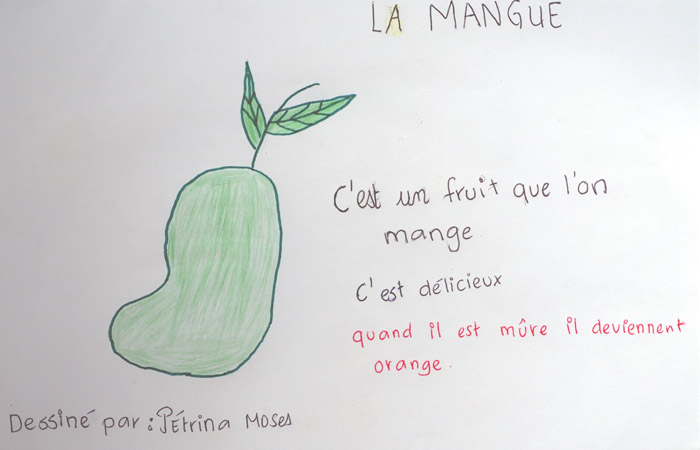 LA MANGUE
C'est un fruit que l'on
mange
C'est délicieux
quand il est mûre il deviennent
orange.
Dessiné par : Pétrina Moses